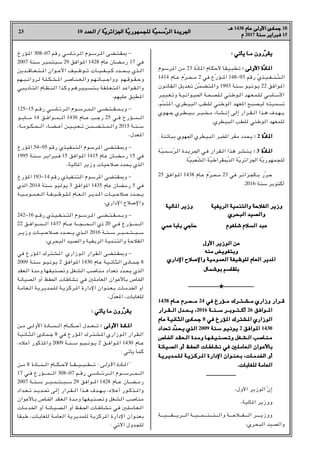 18 جمادى الأولى عام 1438 هـ
15 فبراير سنة 2017 م
الجريدة الرسمية للجمهورية الجزائرية / العدد 10
23
– وبمقتضى المرسوم الرئاسي رقم 07-308 المؤرخ
في 17 رمضان عام 1428 الموافق 29 سبتمبر سنة 2007
الذي يحدد كيفيات توظيف الأعوان المتعاقدين
وحقوقهم وواجباتهم والعناصر المشكلة لرواتبهم
والقواعد المتعلقة بتسييرهم وكذا النظام التأديبي
المطبق عليهم،
– وبمقتضى المرسوم الرئاسي رقم 15-125
المؤرخ في 25 رجب عام 1436 الموافق 14 مايو
سنة 2015 والمتضمن تعيين أعضاء الحكومة،
المعدل،
– وبمقتضى المرسوم التنفيذي رقم 95-54 المؤرخ
في 15 رمضان عام 1415 الموافق 15 فبراير سنة 1995
الذي يحدد صلاحيات وزير المالية،
– وبمقتضى المرسوم التنفيذي رقم 14-193 المؤرخ
في 5 رمضان عام 1435 الموافق 3 يوليو سنة 2014 الذي
يحدد صلاحيات المدير العام للوظيفة العمومية
والإصلاح الإداري،
– وبمقتضى المرسوم التنفيذي رقم 16-242
المؤرخ في 20 ذي الحجة عام 1437 الموافق 22
سبتمبر سنة 2016 الذي يحدد صلاحيات وزير
الفلاحة والتنمية الريفية والصيد البحري،
– وبمقتضى القرار الوزاري المشترك المؤرخ في
8 جمادى الثانية عام 1430 الموافق 2 يونيو سنة 2009
الذي يحدد تعداد مناصب الشغل وتصنيفها ومدة العقد
الخاص بالأعوان العاملين في نشاطات الحفظ أو الصيانة
أو الخدمات بعنوان الإدارة المركزية للمديرية العامة
للغابات، المعدل،
يقررون ما يأتي :
المادة الأولى : تعدل أحكام المادة الأولى من
القرار الوزاري المشترك المؤرخ في 8 جمادى الثانية
عام 1430 الموافق 2 يونيو سنة 2009 والمذكور أعلاه،
كما يأتي :
"المادة الأولى : تطبيقا لأحكام المادة 8 من
المرسوم الرئاسي رقم 07-308 المؤرخ في 17
رمضان عام 1428 الموافق 29 سبتمبر سنة 2007
والمذكور أعلاه، يهدف هذا القرار إلى تحديد تعداد
مناصب الشغل وتصنيفها ومدة العقد الخاص بالأعوان
العاملين في نشاطات الحفظ أو الصيانة أو الخدمات
بعنوان الإدارة المركزية للمديرية العامة للغابات، طبقا
للجدول الآتي
يقررون ما يأتي :
المادة الأولى : تطبيقا لأحكام المادة 23 من المرسوم
التنفيذي رقم 93-148 المؤرخ في 2 محرم عام 1414
الموافق 22 يونيو سنة 1993 والمتضمن تعديل القانون
الأساسي للمعهد الوطني للصحة الحيوانية وتغيير
تسميته ليصبح المعهد الوطني للطب البيطري، المتمم،
يهدف هذا القرار إلى إنشاء مخبر بيطري جهوي
للمعهد الوطني للطب البيطري.
المادة 2 : يحدد مقر المخبر البيطري الجهوي بباتنة.
المادة 3 : ينشر هذا القرار في الجريدة الرسمية
للجمهورية الجزائرية الديمقراطية الشعبية.
حرر بالجزائر في 23 محرم عام 1438 الموافق 25
أكتوبر سنة 2016.
وزير الفلاحة والتنمية الريفية
والصيد البحري
عبد السلام شلغوم
وزير المالية
حاجي بابا عمي
عن الوزير الأول
وبتفويض منه
المدير العام للوظيفة العمومية والإصلاح الإداري
بلقاسم بوشمال
قرار وزاري مشترك مؤرخ في 24 محرم عام 1438
الموافق 26 أكتوبر سنة 2016، يعدل القرار
الوزاري المشترك المؤرخ في 8 جمادى الثانية عام
1430 الموافق 2 يونيو سنة 2009 الذي يحدد تعداد
مناصب الشغل وتصنيفها ومدة العقد الخاص
بالأعوان العاملين في نشاطات الحفظ أو الصيانة
أو الخدمات، بعنوان الإدارة المركزية للمديرية
العامة للغابات.
إن الوزير الأول،
ووزير المالية،
ووزير الفلاحة والتنمية الريفية
والصيد البحري،